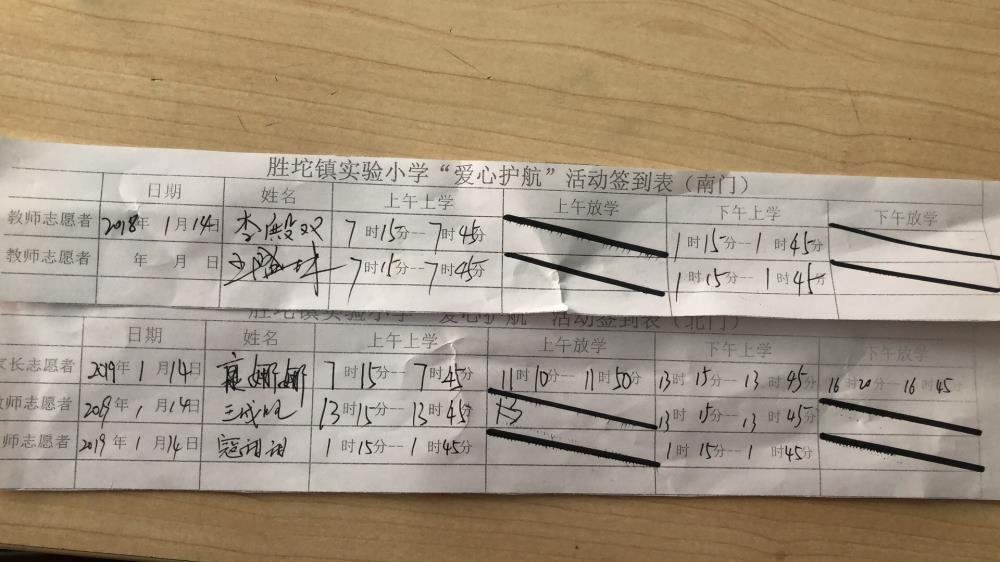 胜坨镇实验小学“爱心护航”活动签到表（南门）
日期 姓名 上午上学 上午放学 下午上学 下午放学
教师志愿者 2018年 1月14日 李殿双 7时15分--7时45分 1时15分--1时45分
教师志愿者 年 月 日 7时15分--7时45分 1时15分--1时45分
胜坨镇实验小学“爱心护航”活动签到表（北门）
日期 姓名 上午上学 上午放学 下午上学 下午放学
家长志愿者 2019年1月14日 娜娜 7时15分--7时45分 11时10分--11时50分 13时15分--13时45分 16时20分--16时45分
教师志愿者 2019年1月14日 13时15分--13时45分 13 13时15分--13时45分
师志愿者 2019年1月14日 1时15分--1时45分 1时15分--1时45分